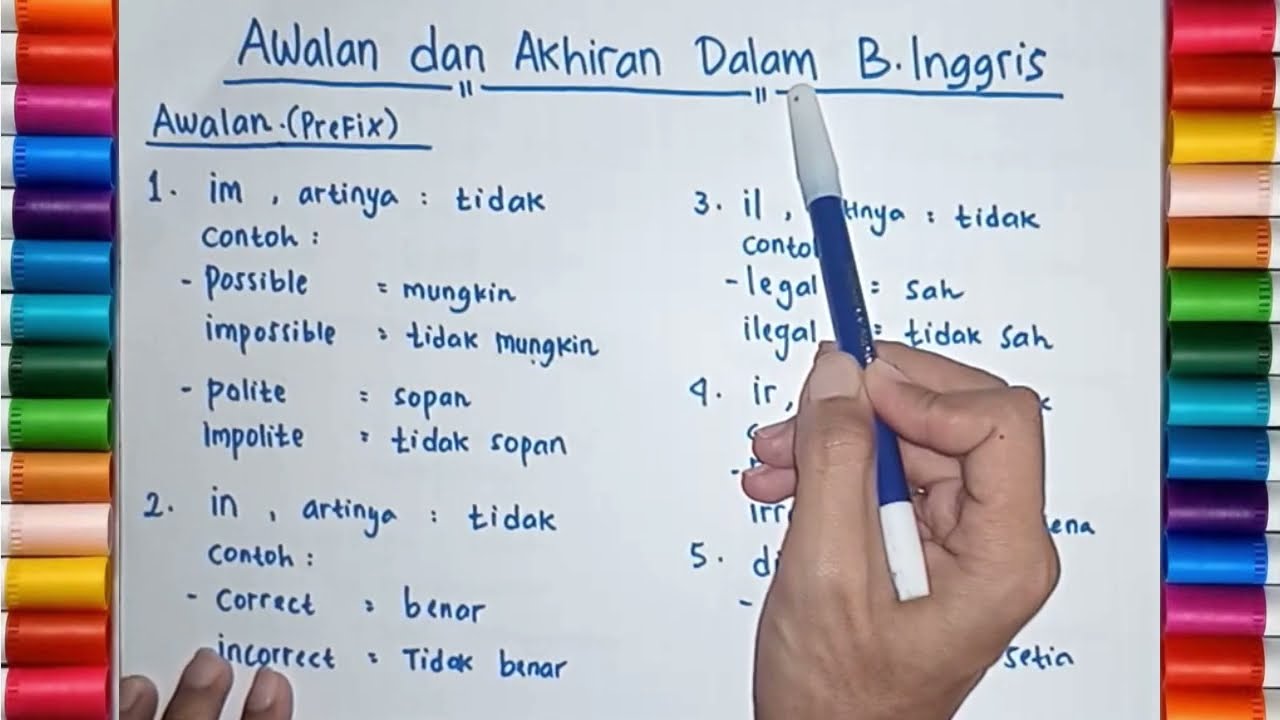 Awalan dan Akhiran Dalam B. Inggris
Awalan. (Prefix)
1. im , artinya : tidak
Contoh :
- Possible = mungkin
impossible = tidak mungkin
- Polite = sopan
Impolite = tidak sopan
2. in , artinya : tidak
Contoh :
- Correct = benar
incorrect = Tidak benar
3. il , : tidak
- legal = sah
ilegal = tidak sah
4. ir,
5.
setia